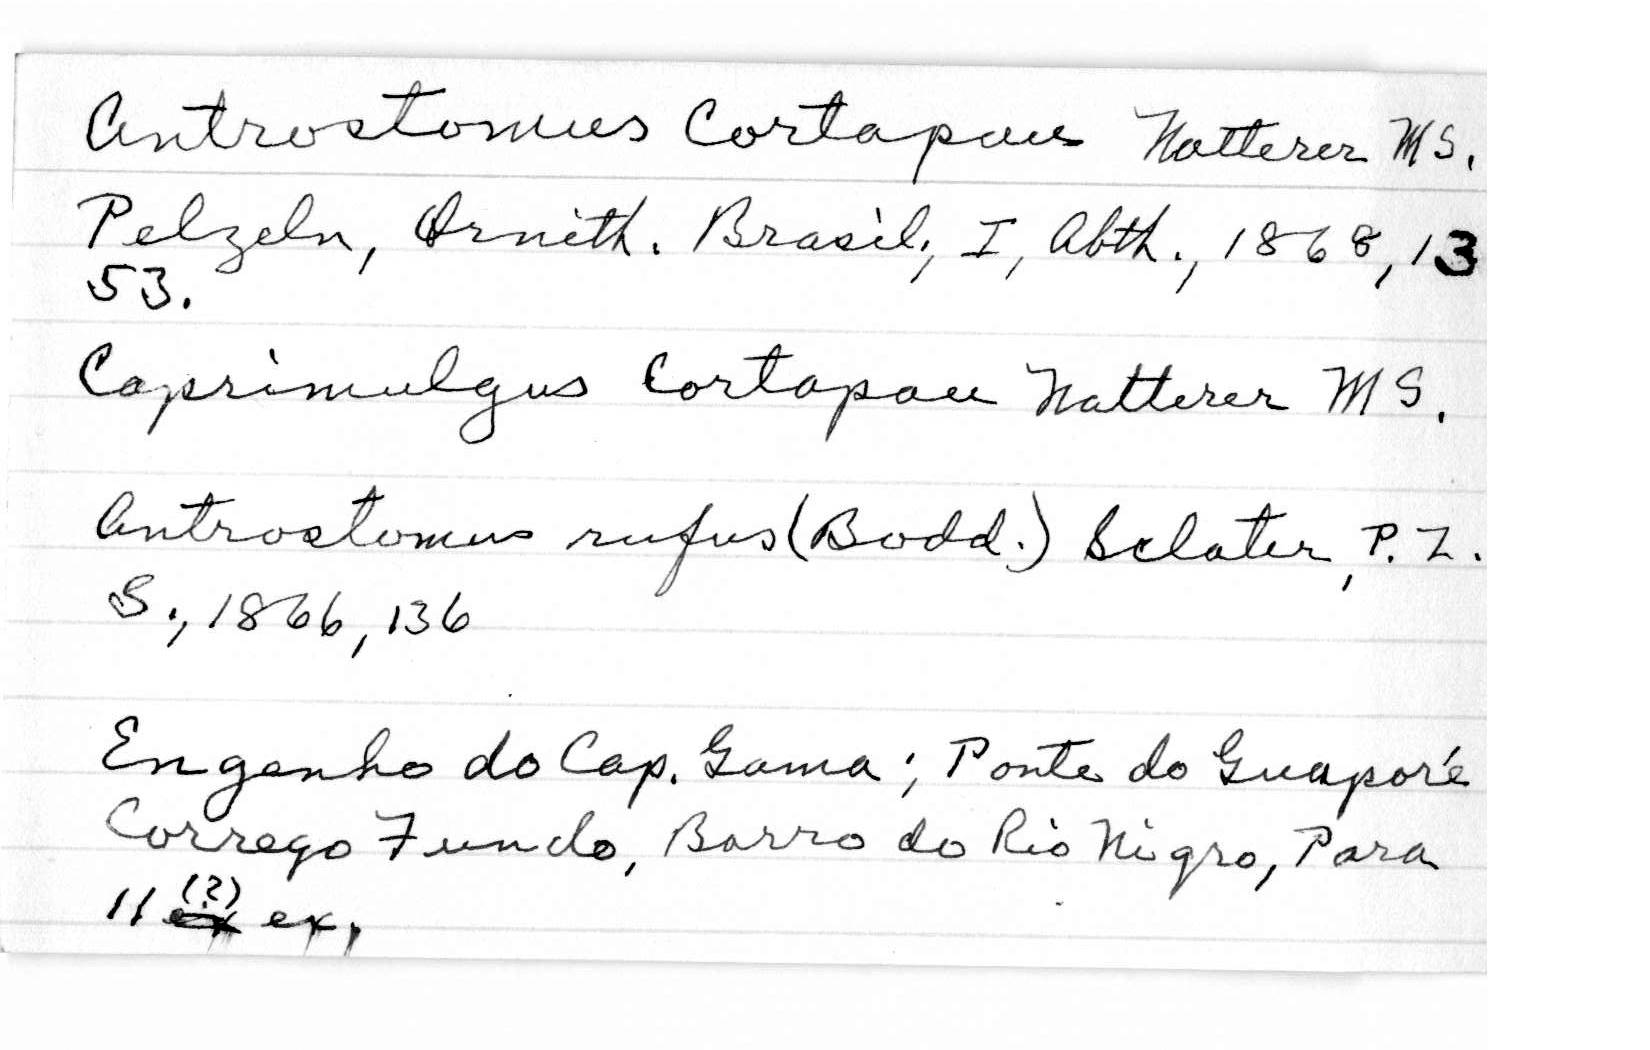 Antrostomus Cortapau Natterer MS.
Pelzeln, Ornith. Brasil, I, Abth., 1868, 13
53.
Caprimulgus Cortapau Natterer MS.
Antrostomus rufus (Bodd.) Sclater, P. Z.
S., 1866, 136
Engenho do Cap. Gama; Ponte do Guaporé
Corrego Fundo, Barro do Rio Nigro, Para
11 (?) ex.